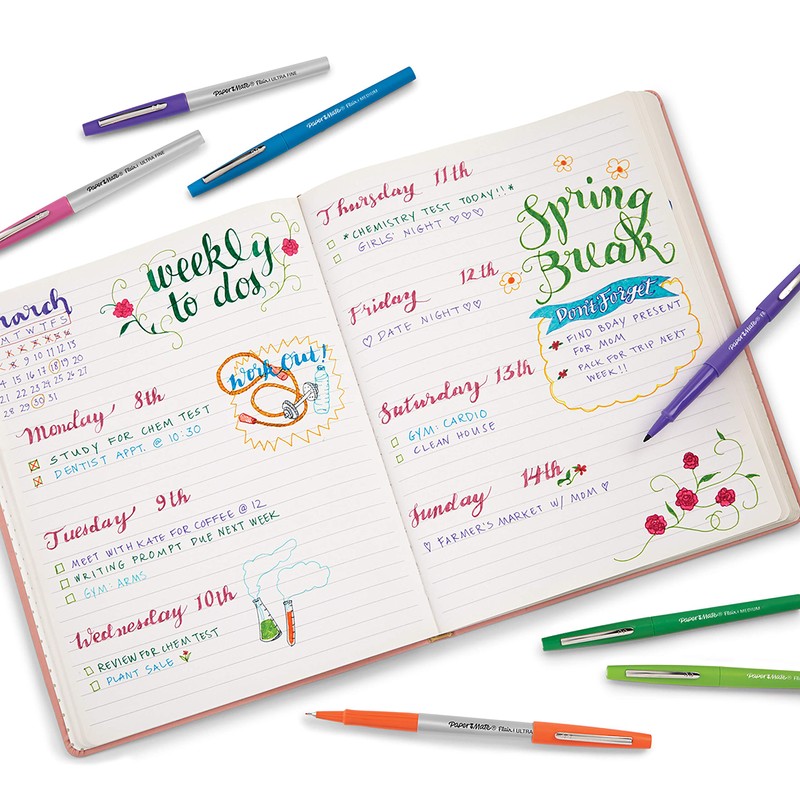 PAPER MATE® Flair. ULTRA FINE
PAPER MATE® Flair. MEDIUM
PAPER MATE® Flair. ULTRA FINE
weekly
to dos
arch
M T W T F S
9 10 11 12 13
14 15 16 17 18 19 20
21 22 23 24 25 26 27
28 29 30 31
Monday 8th
STUDY FOR CHEM TEST
DENTIST APPT. @ 10:30
Work Out!
Tuesday 9th
MEET WITH KATE FOR COFFEE @ 12
WRITING PROMPT DUE NEXT WEEK
GYM: ARMS
Wednesday 10th
REVIEW FOR CHEM TEST
PLANT SALE
Thursday 11th
*CHEMISTRY TEST TODAY!!*
GIRLS' NIGHT ♡♡♡
Friday 12th
♡ DATE NIGHT ♡♡
Saturday 13th
GYM: CARDIO
CLEAN HOUSE
Sunday 14th
♡ FARMER'S MARKET W/ MOM ♡
Spring
Break
Don't Forget
FIND BDAY PRESENT
FOR MOM
PACK FOR TRIP NEXT
WEEK!!
PAPER MATE® Flair.
PAPER MATE® Flair. MEDIUM
PAPER MATE®
PAPER MATE® Flair. ULTRA